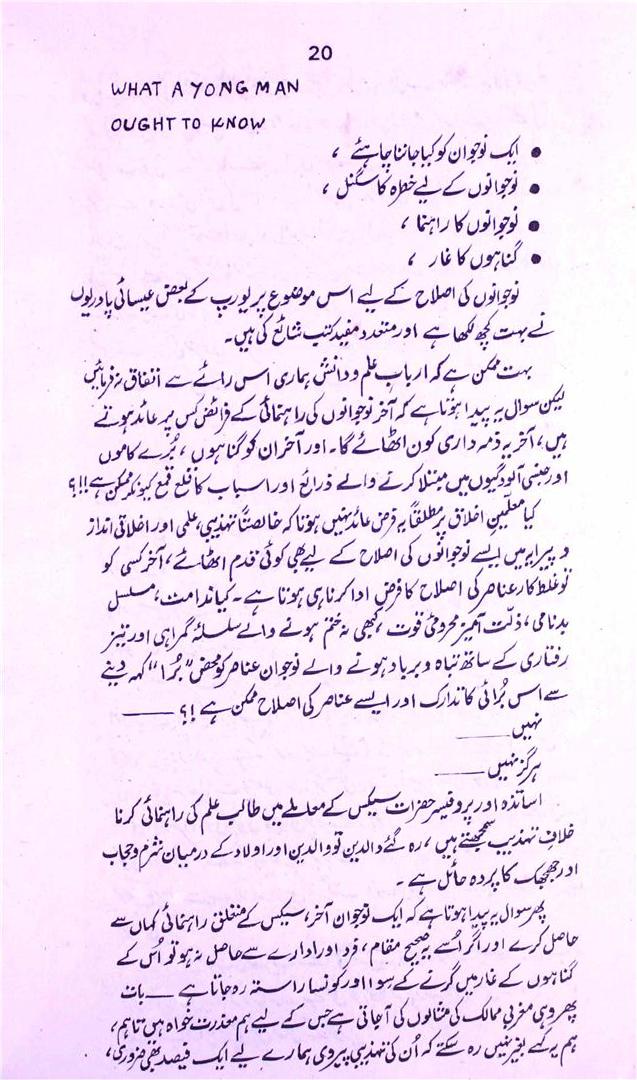 20
WHAT A YONG MAN
OUGHT TO KNOW
● ایک نوجوان کو کیا جاننا چاہئے ،
● نوجوانوں کے لیے خطرہ کا سگنل ،
● نوجوانوں کا راہنما ،
● گناہوں کا غار ،
نوجوانوں کی اصلاح کے لیے اس موضوع پر یورپ کے بعض عیسائی پادریوں
نے بہت کچھ لکھا ہے اور متعدد مفید کتب شائع کی ہیں۔
بہت ممکن ہے کہ اربابِ علم و دانش ہماری اس رائے سے اتفاق نہ فرمائیں
لیکن سوال یہ پیدا ہوتا ہے کہ آخر نوجوانوں کی راہنمائی کے فرائض کس پر عائد ہوتے
ہیں، آخر یہ ذمہ داری کون اٹھائے گا۔ اور آخر ان کو گناہوں ، بُرے کاموں
اور جنسی آلودگیوں میں مبتلا کرنے والے ذرائع اور اسباب کا قلع قمع کیونکر ممکن ہے !!؟
کیا معلّمینِ اخلاق پر مطلقاً یہ فرض عائد نہیں ہوتا کہ خالصتاً تہذیبی، علمی اور اخلاقی انداز
و پیرایہ میں ایسے نوجوانوں کی اصلاح کے لیے بھی کوئی قدم اٹھائے، آخر کسی کو
تو غلط کار عناصر کی اصلاح کا فرض ادا کرنا ہی ہوتا ہے۔ کیا ندامت، مسلسل
بدنامی، ذلّت آمیز محرومیٔ قوت ، کبھی نہ ختم ہونے والے سلسلۂ گمراہی اور تیز
رفتاری کے ساتھ تباہ و برباد ہونے والے نوجوان عناصر کو محض "بُرا" کہہ دینے
سے اس بُرائی کا تدارک اور ایسے عناصر کی اصلاح ممکن ہے !؟ ———
نہیں ———
ہرگز نہیں ———
اساتذہ اور پروفیسر حضرات سیکس کے معاملے میں طالب علم کی راہنمائی کرنا
خلافِ تہذیب سمجھتے ہیں ، رہ گئے والدین تو والدین اور اولاد کے درمیان شرم و حجاب
اور جھجک کا پردہ حائل ہے ۔
پھر سوال یہ پیدا ہوتا ہے کہ ایک نوجوان آخر، سیکس کے متعلق راہنمائی کہاں سے
حاصل کرے اور اگر اُسے صحیح مقام ، فرد اور ادارے سے حاصل نہ ہو تو اُس کے
گناہوں کے غار میں گرنے کے سوا اور کونسا راستہ رہ جاتا ہے — بات
پھر وہی مغربی ممالک کی مثالوں کی آجاتی ہے جس کے لیے ہم معذرت خواہ ہیں تاہم،
ہم یہ کہے بغیر نہیں رہ سکتے کہ اُن کی تہذیبی پیروی ہمارے لیے ایک فیصد بھی ضروری،